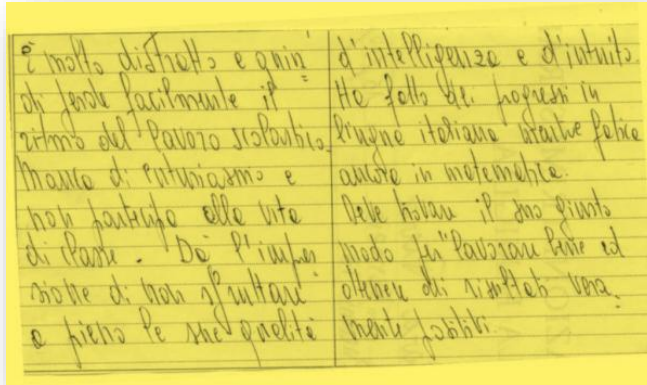 È molto distratto e quin=
di perde facilmente il
ritmo del lavoro scolastico.
Manca di entusiasmo e
non partecipa alla vita
di classe. Dà l'impres
sione di non sfruttare
a pieno le sue qualità
d'intelligenza e d'intuito.
Ha fatto dei progressi in
lingua italiana mentre fatica
ancora in matematica.
Deve trovare il suo giusto
modo per lavorare bene ed
ottenere dei risultati vera=
mente positivi.